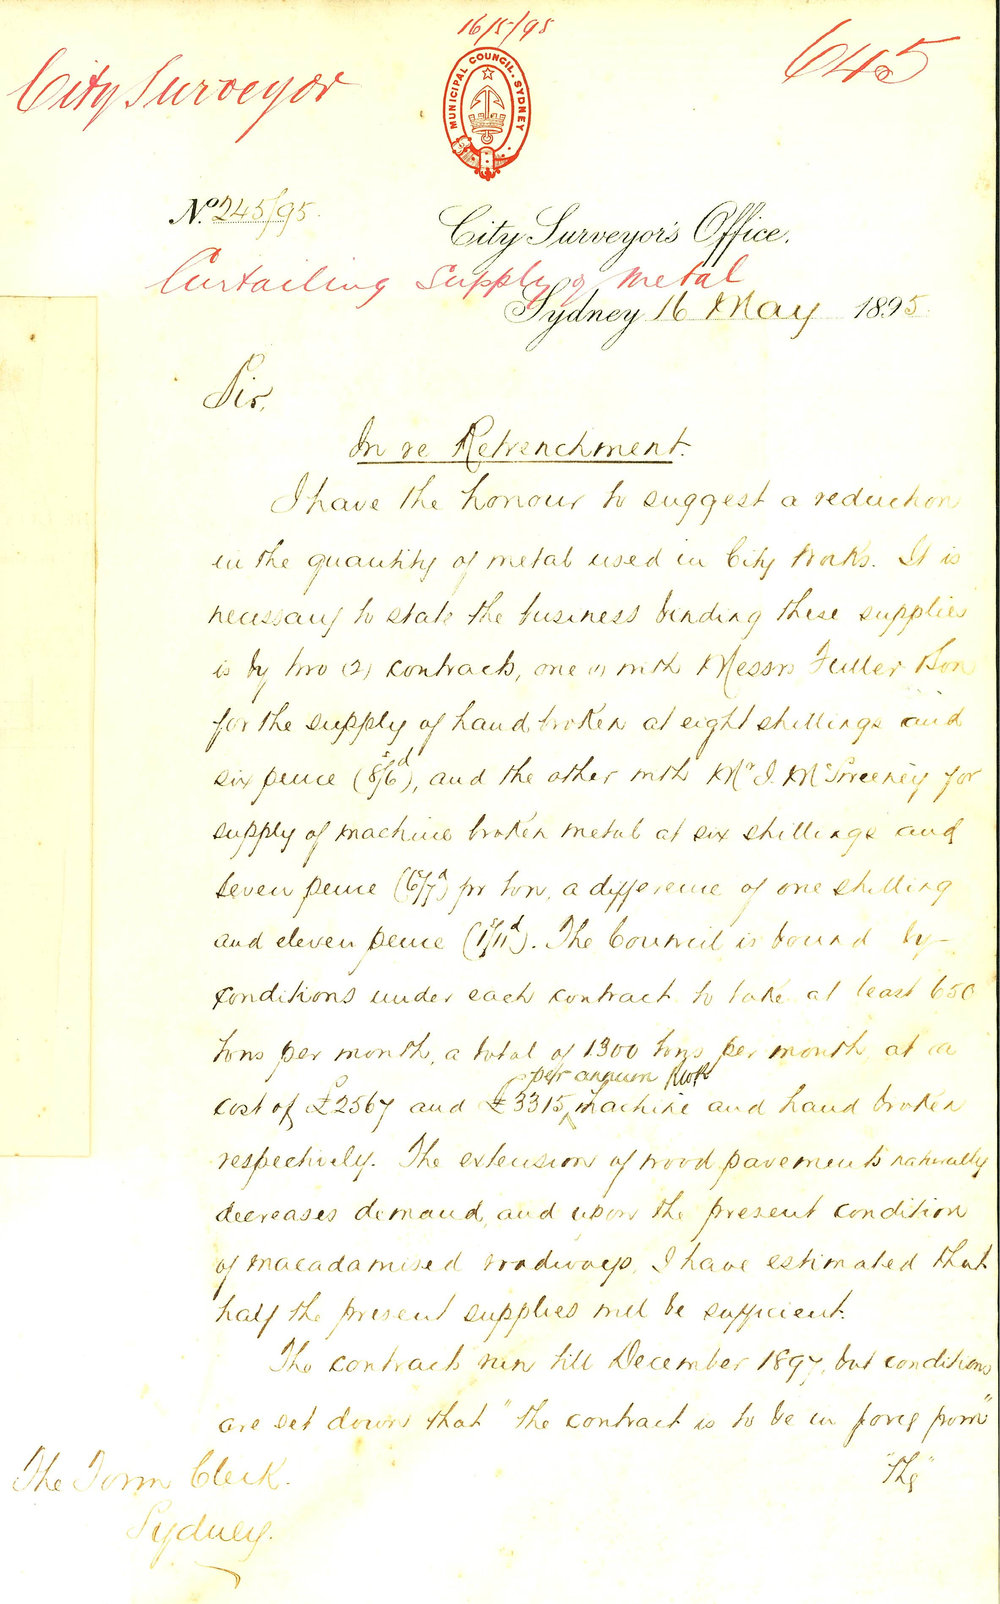 16/5/95
City Surveyor
645
MUNICIPAL COUNCIL. SYDNEY
No. 245/95.
City Surveyor's Office.
Curtailing supply of metal
Sydney 16 May 1895.
Sir,
In re Retrenchment.
I have the honour to suggest a reduction
in the quantity of metal used in City Works. It is
necessary to state the business binding these supplies
is by two (2) contracts, one (1) with Messrs Fuller & Son
for the supply of hand broken at eight shillings and
six pence (8s/6d), and the other with Mr J. McSweeney for
supply of machine broken metal at six shillings and
seven pence (6s/7d) pr ton, a difference of one shilling
and eleven pence (1s/11d). The Council is bound by
conditions under each contract to take at least 650
tons per month, a total of 1300 tons per month, at a
per annum
cost of £2567 and £3315, machine and hand broken
respectively. The extension of wood pavements naturally
decreases demand, and upon the present condition
of macadamised roadways, I have estimated that
half the present supplies will be sufficient.
The contracts run till December 1897, but conditions
are set down that "the contract is to be in force from"
The Town Clerk.
"The"
Sydney.